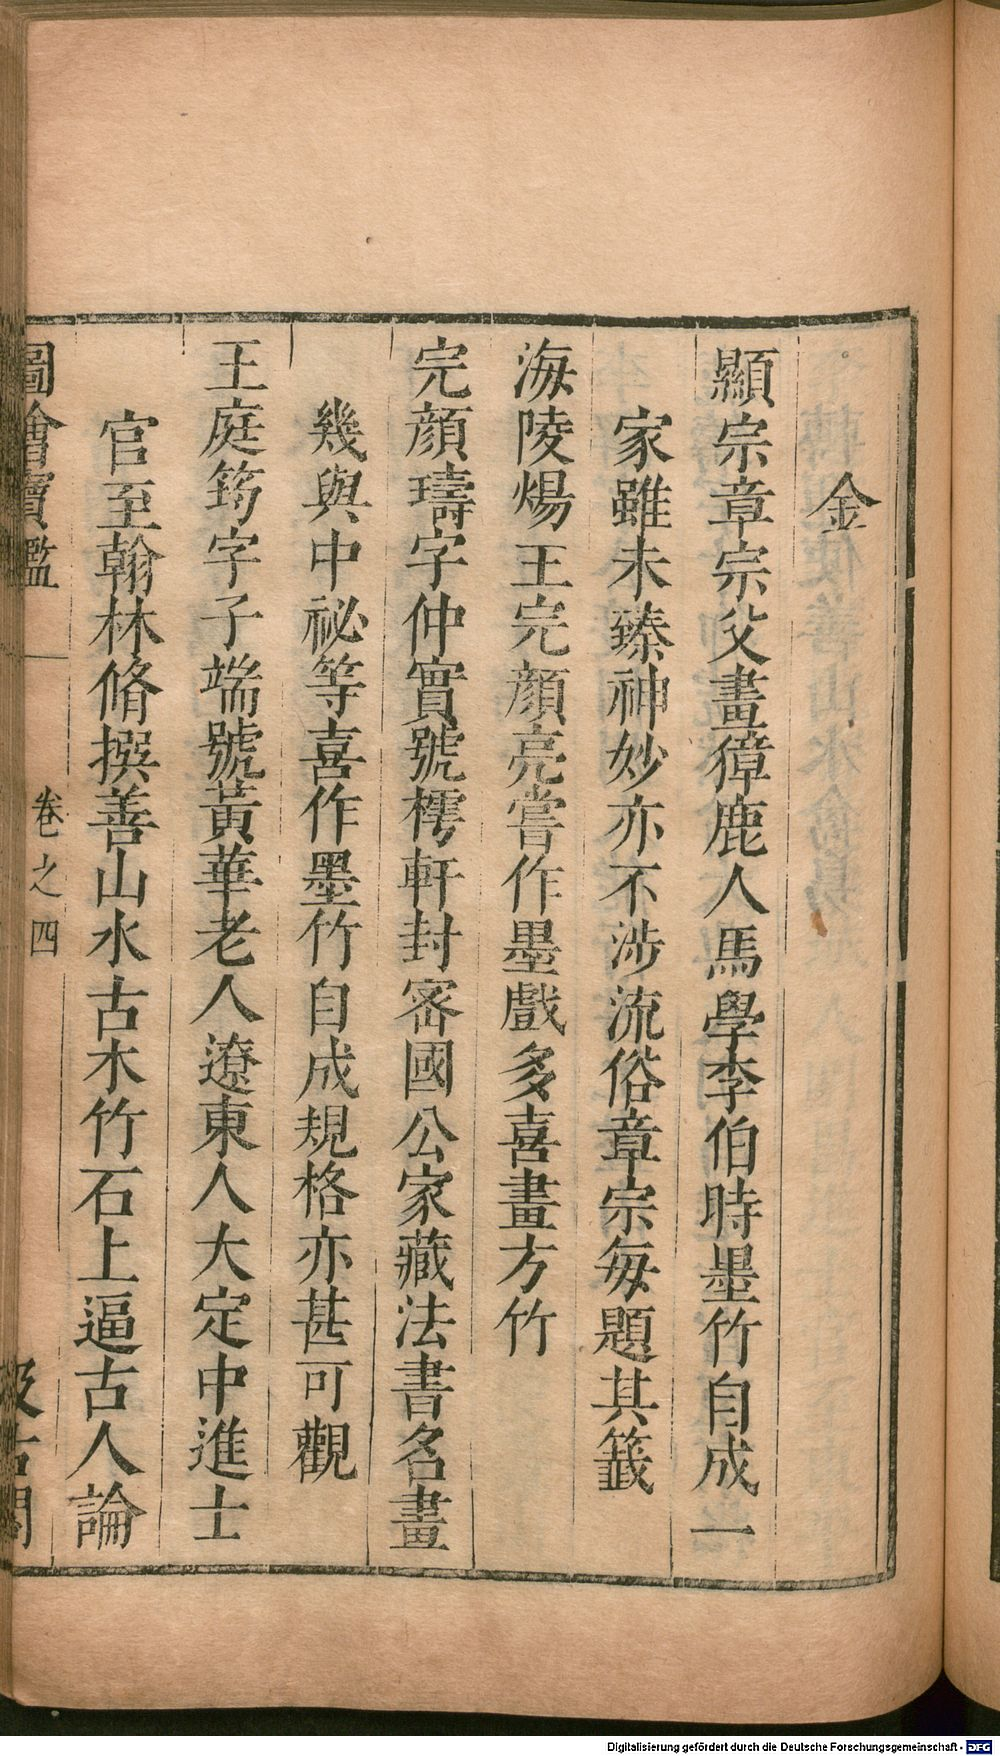 金
顯宗章宗父畫獐鹿人馬學李伯時墨竹自成一
家雖未臻神妙亦不涉流俗章宗每題其籤
海陵煬王完顔亮嘗作墨戲多喜畫方竹
完顔璹字仲實號樗軒封宻國公家藏法書名畫
幾與中祕等喜作墨竹自成規格亦甚可觀
王庭筠字子端號黃華老人遼東人大定中進士
官至翰林脩撰善山水古木竹石上逼古人論
圖繪寶鑑
卷之四
汲古閣
Digitalisierung gefördert durch die Deutsche Forschungsgemeinschaft - DFG